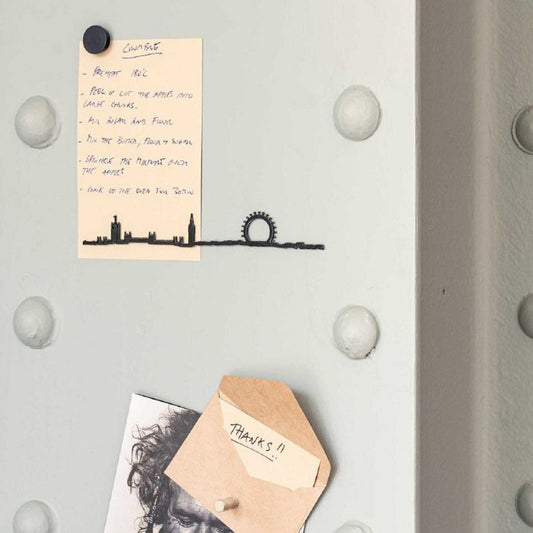 CRUMBLE
- PREHEAT 180°C
- PEEL & CUT THE APPLES INTO
LARGE CHUNKS.
- MIX SUGAR AND FLOUR
- MIX THE BUTTER, FLOUR & SUGAR
- SPRINKLE THE MIXTURE OVER
THE APPLES
- COOK IN THE OVEN
THANKS!!